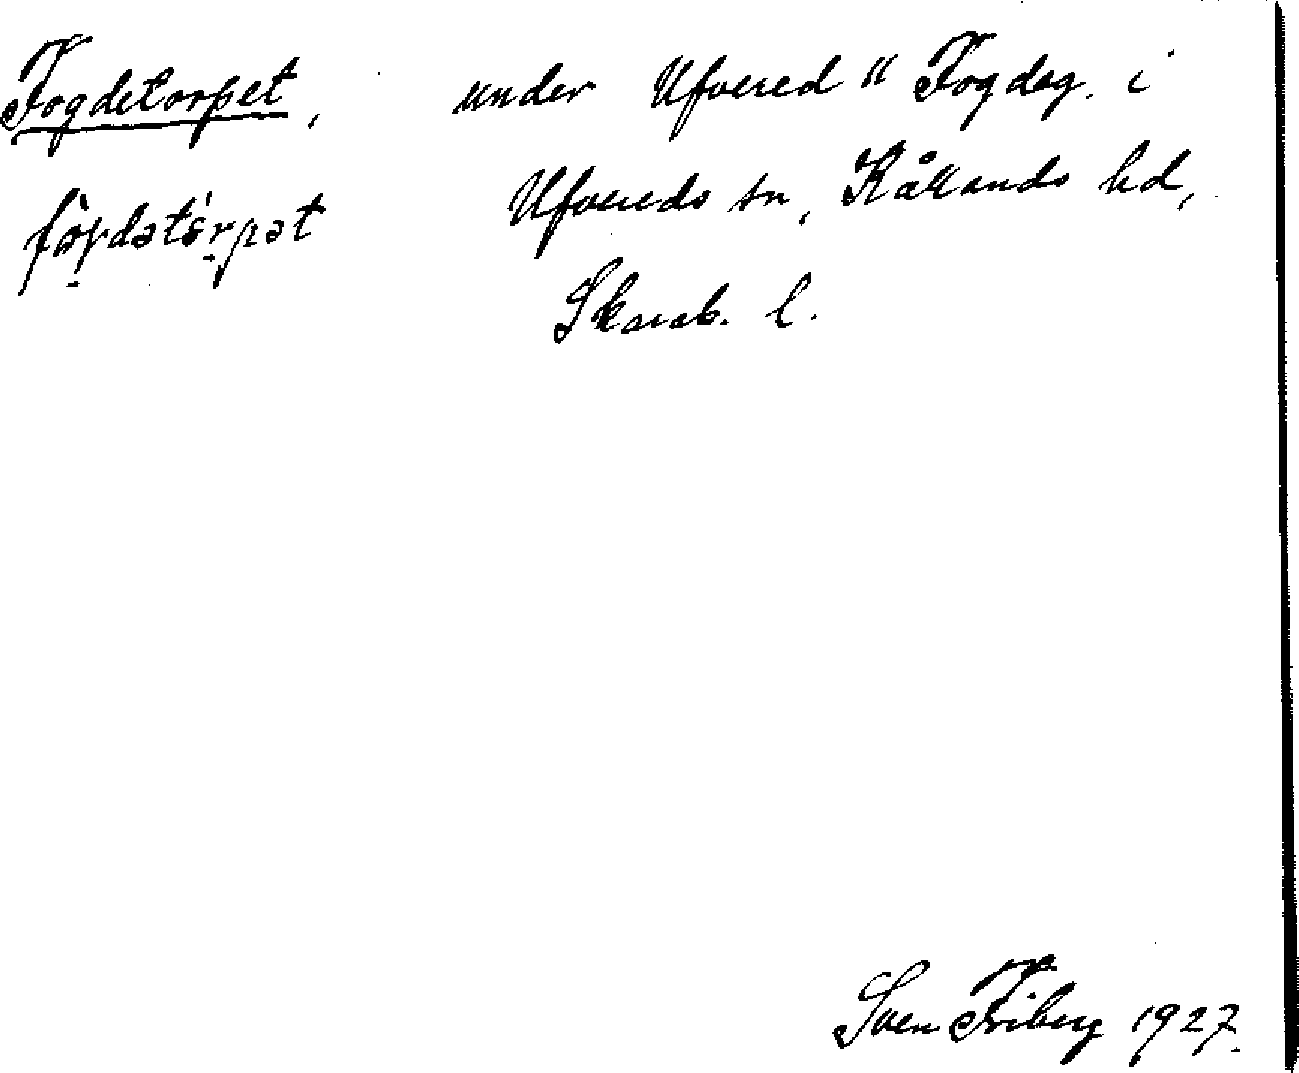 Fogdetorpet, under Ufvered " Fogdeg. i
Ufvereds sn, Kållands hd,
fòγdatórpət
Skarab. l.
Sven Friberg 1927.